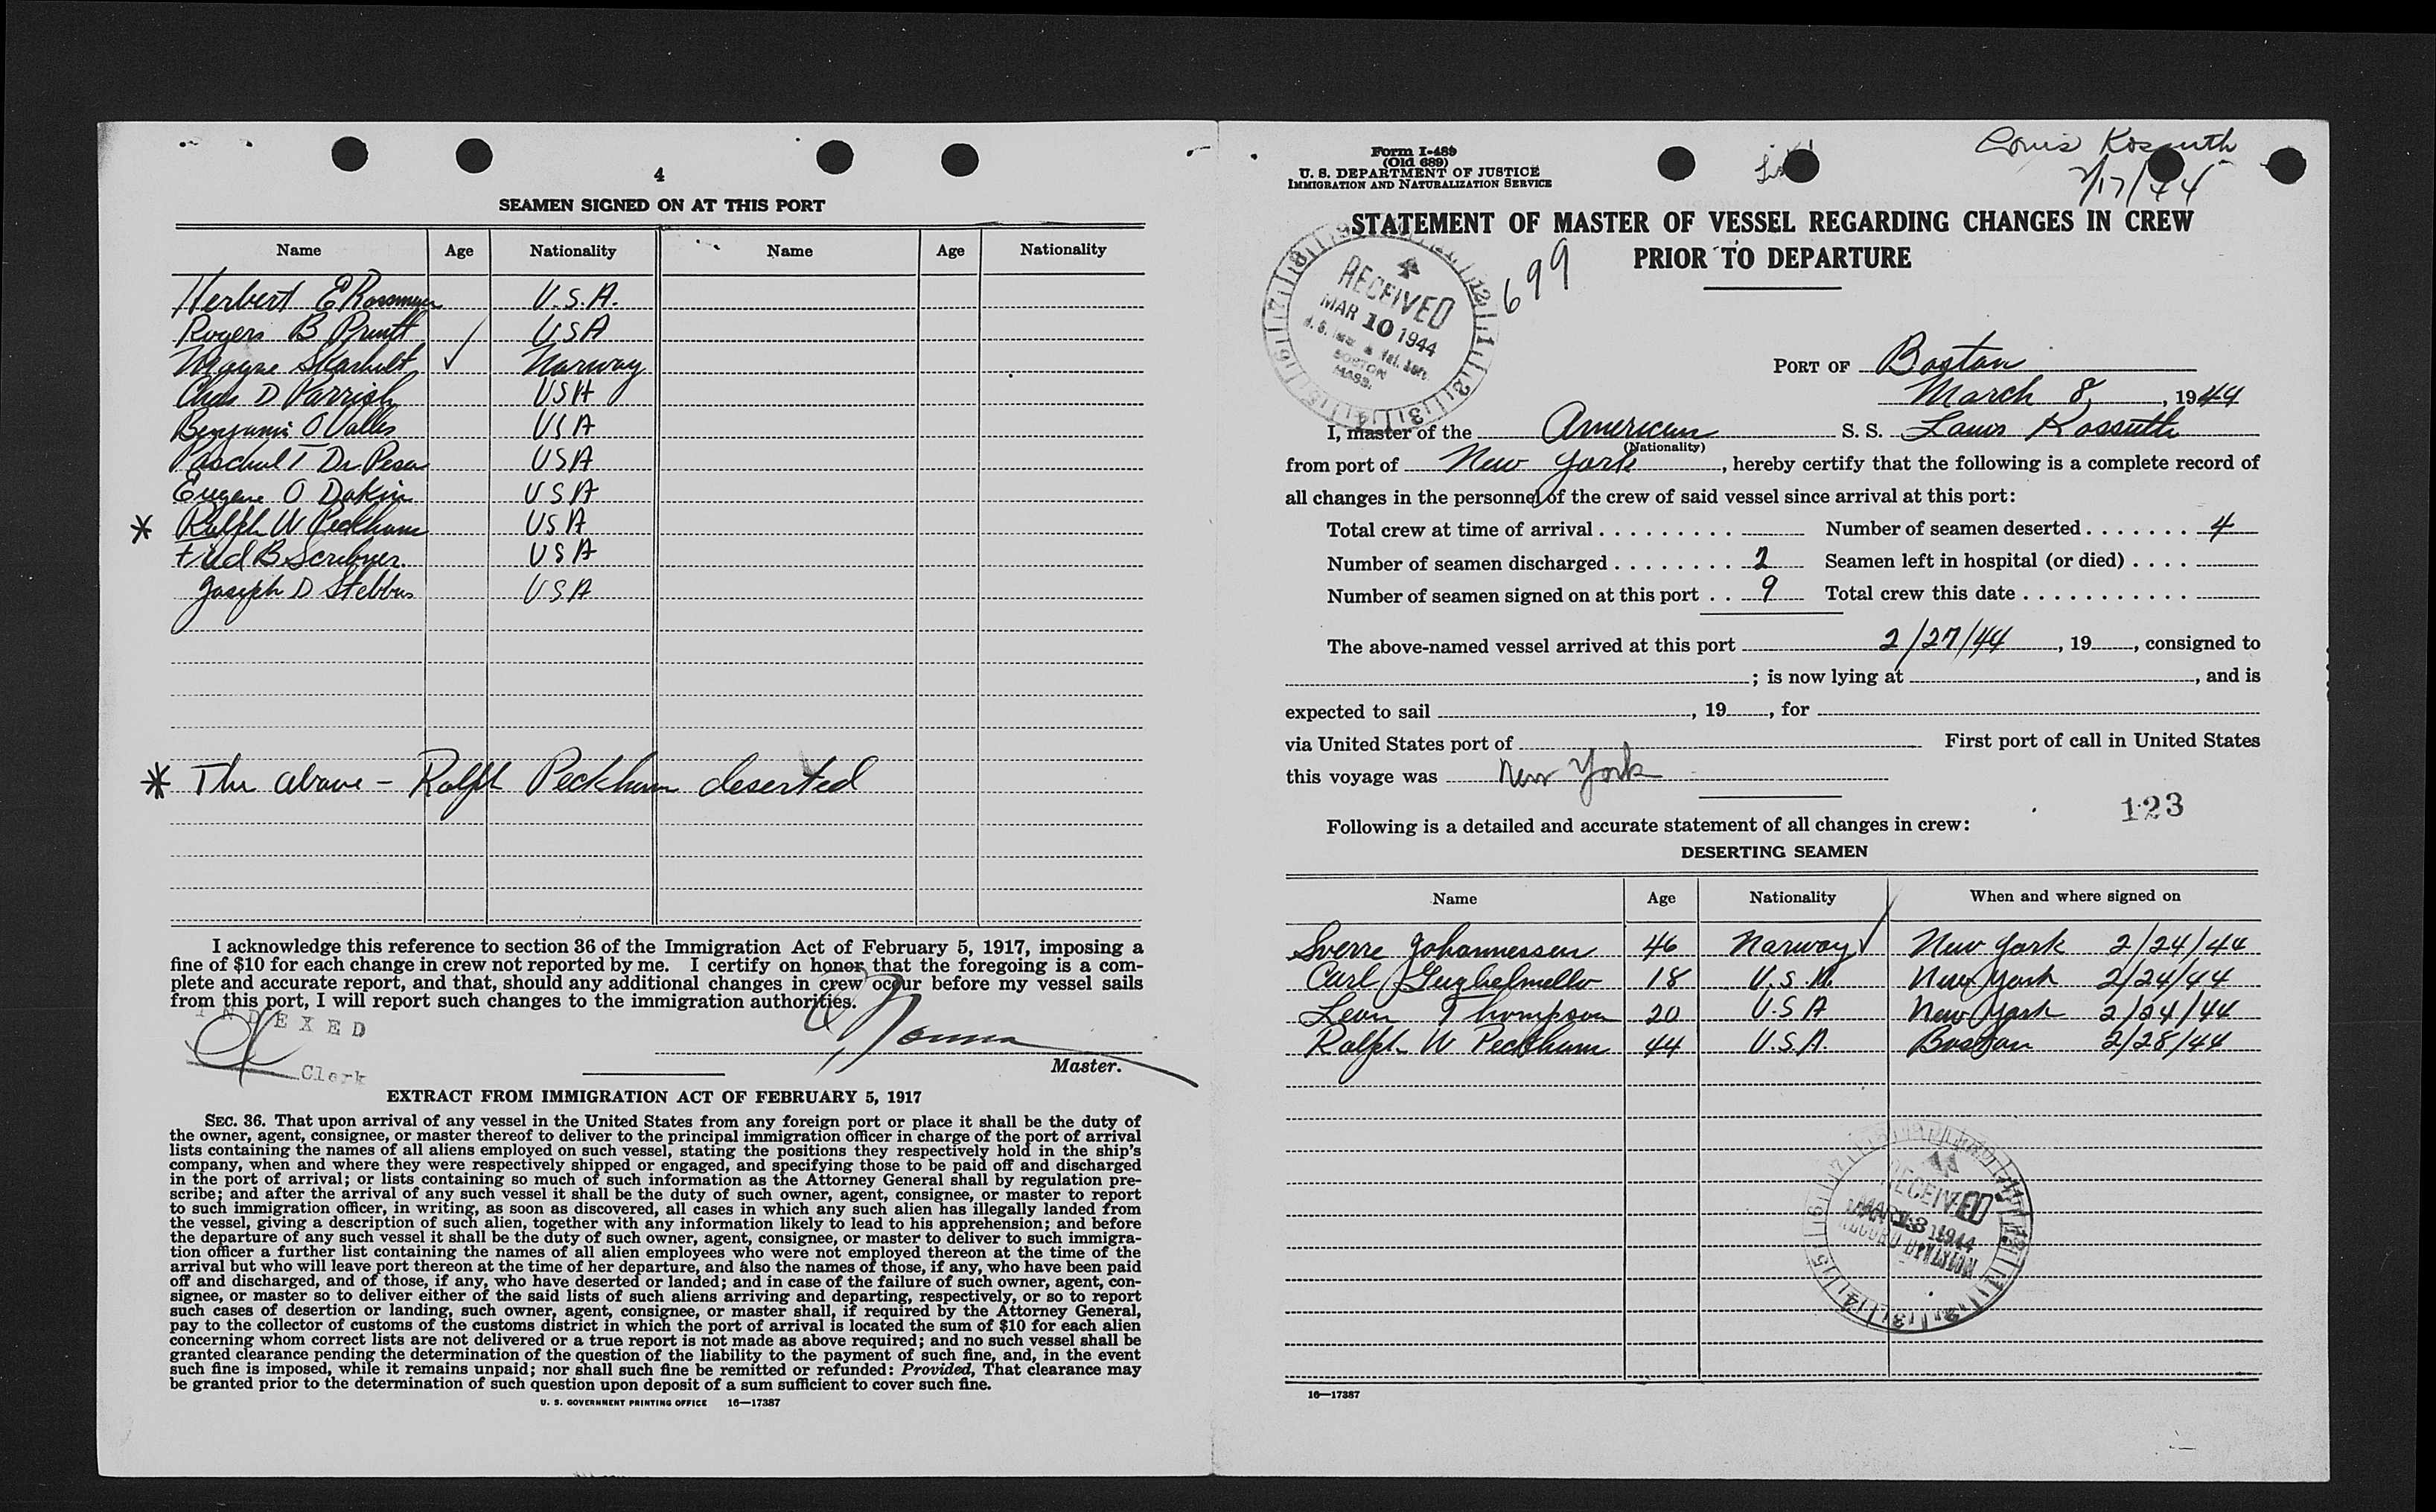 4
SEAMEN SIGNED ON AT THIS PORT
Name Age Nationality Name Age Nationality
Herbert E U.S.A.
Rogers B Pruitt USA
Magne ✓ Norway
Chas D Parrish USA
Benjamin O Valles USA
T De USA
Eugene O Dakin USA
* Ralph W Peckham USA
Fred B Scribner. USA
Joseph D Stebbins USA
* The above - Ralph Peckham deserted
I acknowledge this reference to section 36 of the Immigration Act of February 5, 1917, imposing a
fine of $10 for each change in crew not reported by me. I certify on honor that the foregoing is a com-
plete and accurate report, and that, should any additional changes in crew occur before my vessel sails
from this port, I will report such changes to the immigration authorities.
INDEXED
Clerk
Master.
EXTRACT FROM IMMIGRATION ACT OF FEBRUARY 5, 1917
SEC. 36. That upon arrival of any vessel in the United States from any foreign port or place it shall be the duty of
the owner, agent, consignee, or master thereof to deliver to the principal immigration officer in charge of the port of arrival
lists containing the names of all aliens employed on such vessel, stating the positions they respectively hold in the ship's
company, when and where they were respectively shipped or engaged, and specifying those to be paid off and discharged
in the port of arrival; or lists containing so much of such information as the Attorney General shall by regulation pre-
scribe; and after the arrival of any such vessel it shall be the duty of such owner, agent, consignee, or master to report
to such immigration officer, in writing, as soon as discovered, all cases in which any such alien has illegally landed from
the vessel, giving a description of such alien, together with any information likely to lead to his apprehension; and before
the departure of any such vessel it shall be the duty of such owner, agent, consignee, or master to deliver to such immigra-
tion officer a further list containing the names of all alien employees who were not employed thereon at the time of the
arrival but who will leave port thereon at the time of her departure, and also the names of those, if any, who have been paid
off and discharged, and of those, if any, who have deserted or landed; and in case of the failure of such owner, agent, con-
signee, or master so to deliver either of the said lists of such aliens arriving and departing, respectively, or so to report
such cases of desertion or landing, such owner, agent, consignee, or master shall, if required by the Attorney General,
pay to the collector of customs of the customs district in which the port of arrival is located the sum of $10 for each alien
concerning whom correct lists are not delivered or a true report is not made as above required; and no such vessel shall be
granted clearance pending the determination of the question of the liability to the payment of such fine, and, in the event
such fine is imposed, while it remains unpaid; nor shall such fine be remitted or refunded: Provided, That clearance may
be granted prior to the determination of such question upon deposit of a sum sufficient to cover such fine.
U. S. GOVERNMENT PRINTING OFFICE 16—17387
Form I-489
(Old 689)
U. S. DEPARTMENT OF JUSTICE
IMMIGRATION AND NATURALIZATION SERVICE
Louis Kossuth
2/17/44
STATEMENT OF MASTER OF VESSEL REGARDING CHANGES IN CREW
PRIOR TO DEPARTURE
699
RECEIVED
MAR 10 1944
BOSTON
MASS.
PORT OF Boston
March 8, 1944
I, master of the American S. S. Louis Kossuth
(Nationality)
from port of New York, hereby certify that the following is a complete record of
all changes in the personnel of the crew of said vessel since arrival at this port:
Total crew at time of arrival . . . . . . . . . Number of seamen deserted . . . . . . . 4
Number of seamen discharged . . . . . . . . . 2 Seamen left in hospital (or died) . . . .
Number of seamen signed on at this port . . 9 Total crew this date . . . . . . . . . . .
The above-named vessel arrived at this port 2/27/44, 19, consigned to
; is now lying at , and is
expected to sail , 19, for
via United States port of First port of call in United States
this voyage was New York
123
Following is a detailed and accurate statement of all changes in crew:
DESERTING SEAMEN
Name Age Nationality When and where signed on
Sverre Johannessen 46 Norway ✓ New York 2/24/44
Carl Guglielmello 18 U.S.A. New York 2/24/44
Leon Thompson 20 U.S.A New York 2/24/44
Ralph W Peckham 44 U.S.A. Boston 2/28/44
RECEIVED
1944
RECORD DIVISION
16—17387